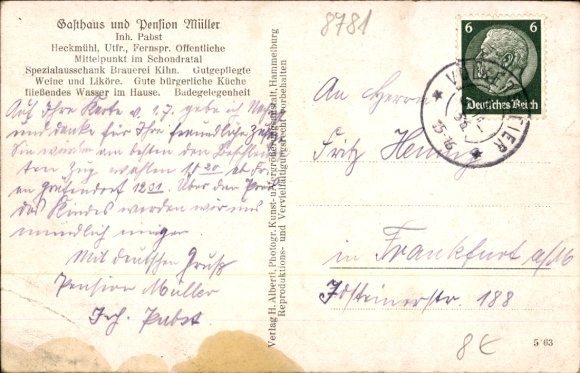 8781
Gasthaus und Pension Müller
Inh. Pabst
Heckmühl, Utfr., Fernspr. Offentliche
Mittelpunkt im Schondratal
Spezialausschank Brauerei Kihn. Gutgepflegte
Weine und Liköre. Gute bürgerliche Küche
fließendes Wasser im Hause. Badegelegenheit
Auf Ihre Karte v. 1.7. gebe
und danke für Ihre freundliche
Sie am besten den
ten Zug wählen ab
Gräfendorf 12 31. Über den
des Kindes werden wir uns
mündlich
Mit deutschem Gruß
Pension Müller
Inh. Pabst
Verlag H. Alberti, Photogr. Kunst- u. Vergrößerungsanstalt, Hammelburg
Reproduktions- und Vervielfältigungsrecht vorbehalten
6 6
Deutsches Reich
15-16
An Herrn
Fritz
in Frankfurt a/M
Idsteinerstr 188
8€
5 63